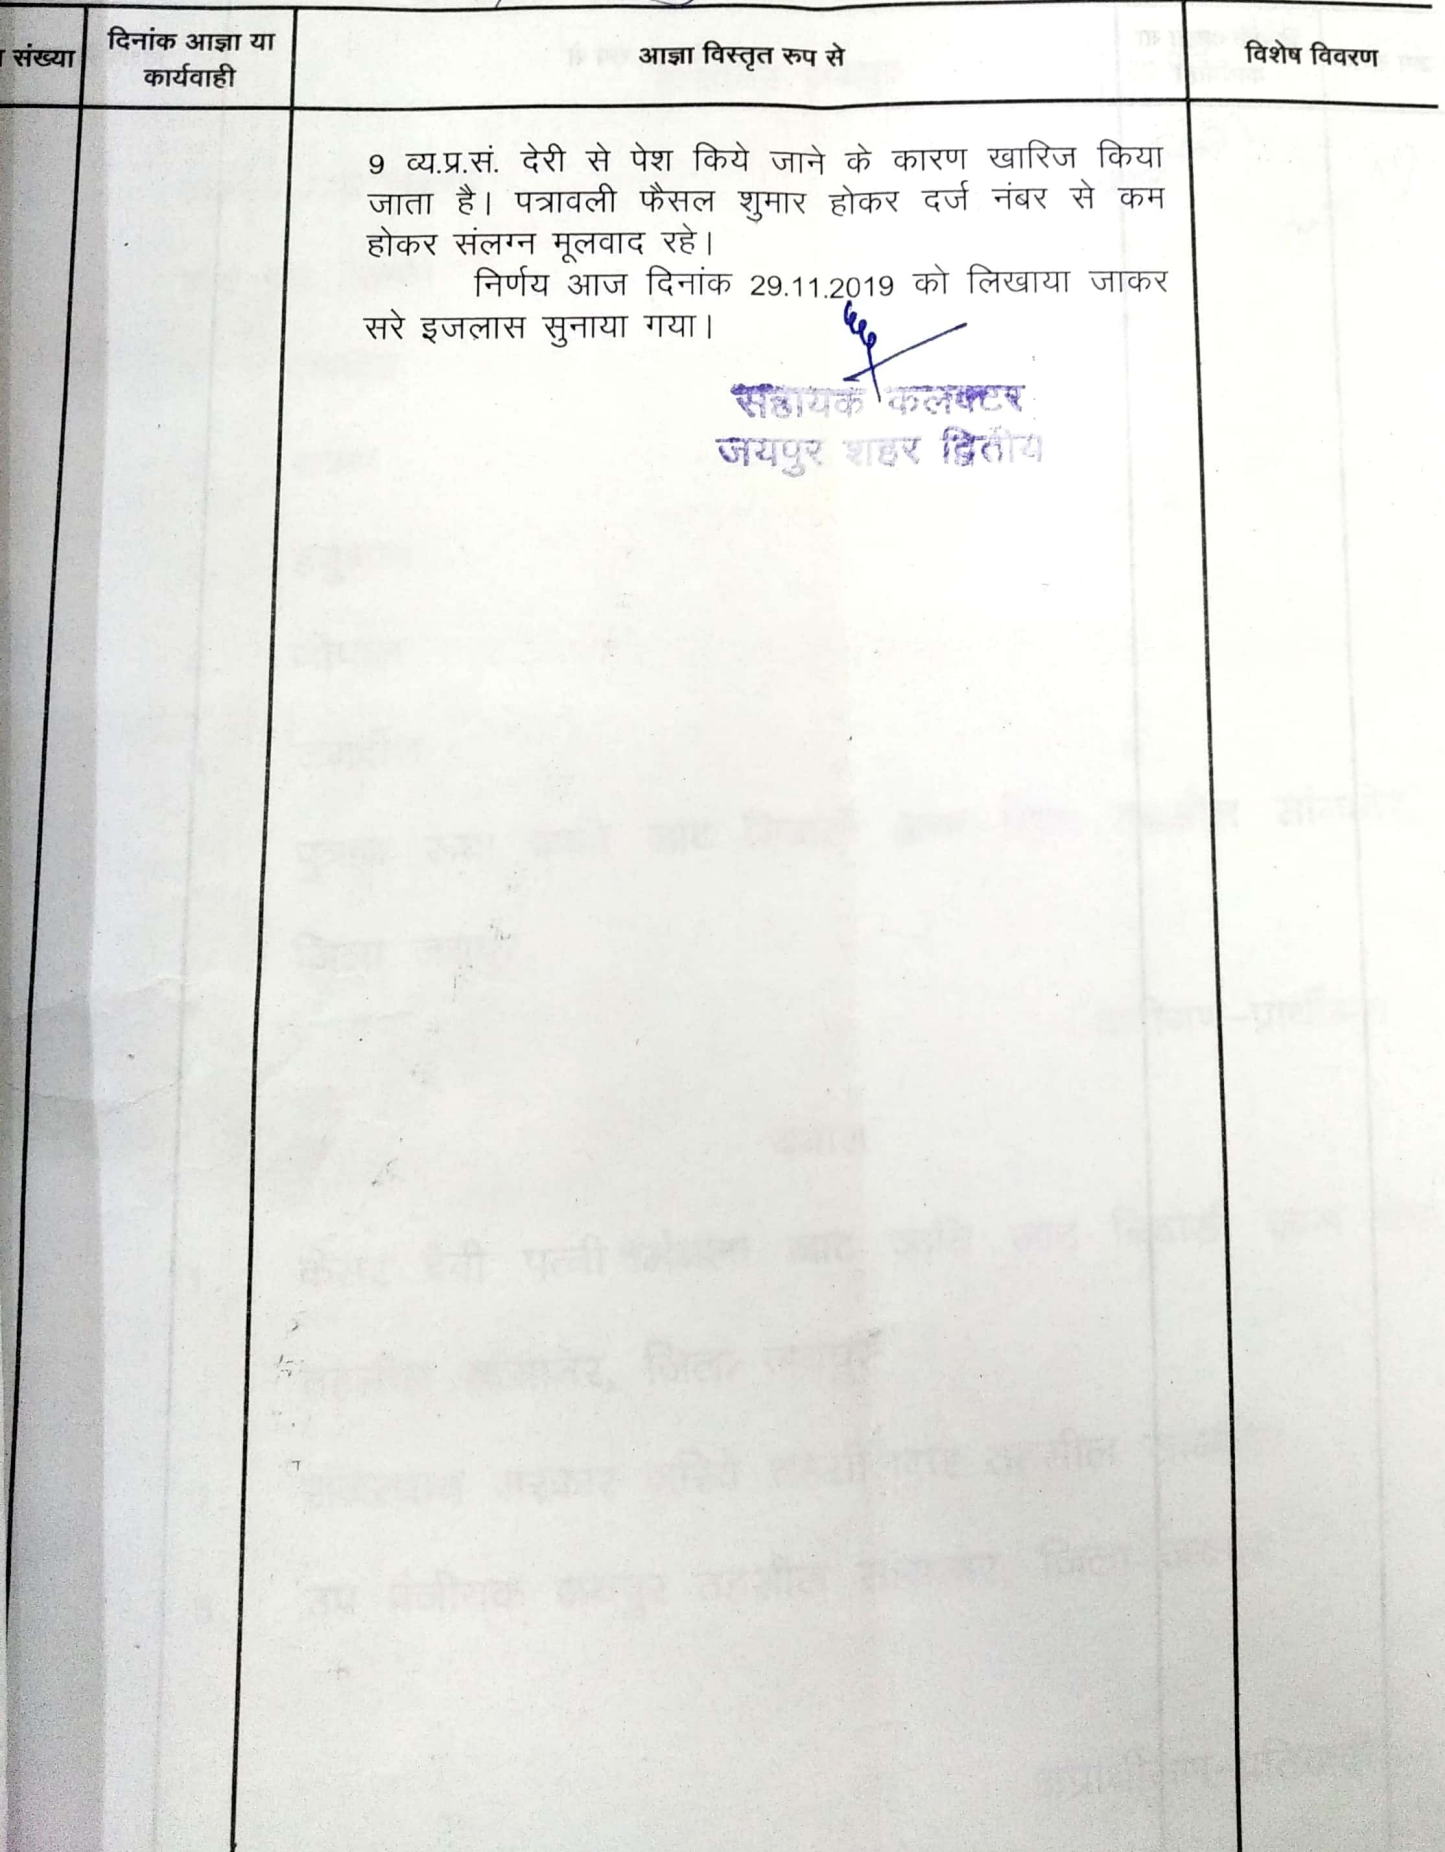 संख्या
दिनांक आज्ञा या
कार्यवाही
आज्ञा विस्तृत रुप से
विशेष विवरण
9 व्य.प्र.सं. देरी से पेश किये जाने के कारण खारिज किया
जाता है। पत्रावली फैसल शुमार होकर दर्ज नंबर से कम
होकर संलग्न मूलवाद रहे।
निर्णय आज दिनांक 29.11.2019 को लिखाया जाकर
सरे इजलास सुनाया गया।
सहायक कलक्टर
जयपुर शहर द्वितीय